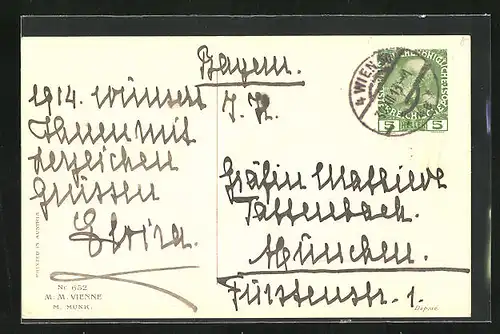 Bayern.
1914. wünscht
Ihnen mit
herzlichen
Grüssen
Elvira.
I. H.
Gräfin Mathilde
Tattenbach.
München.
Fürstenstr. 1.
4 WIEN
5 HELLER 5
PRINTED IN AUSTRIA
Nr. 652
M. M. VIENNE
M. MUNK.
Déposé.